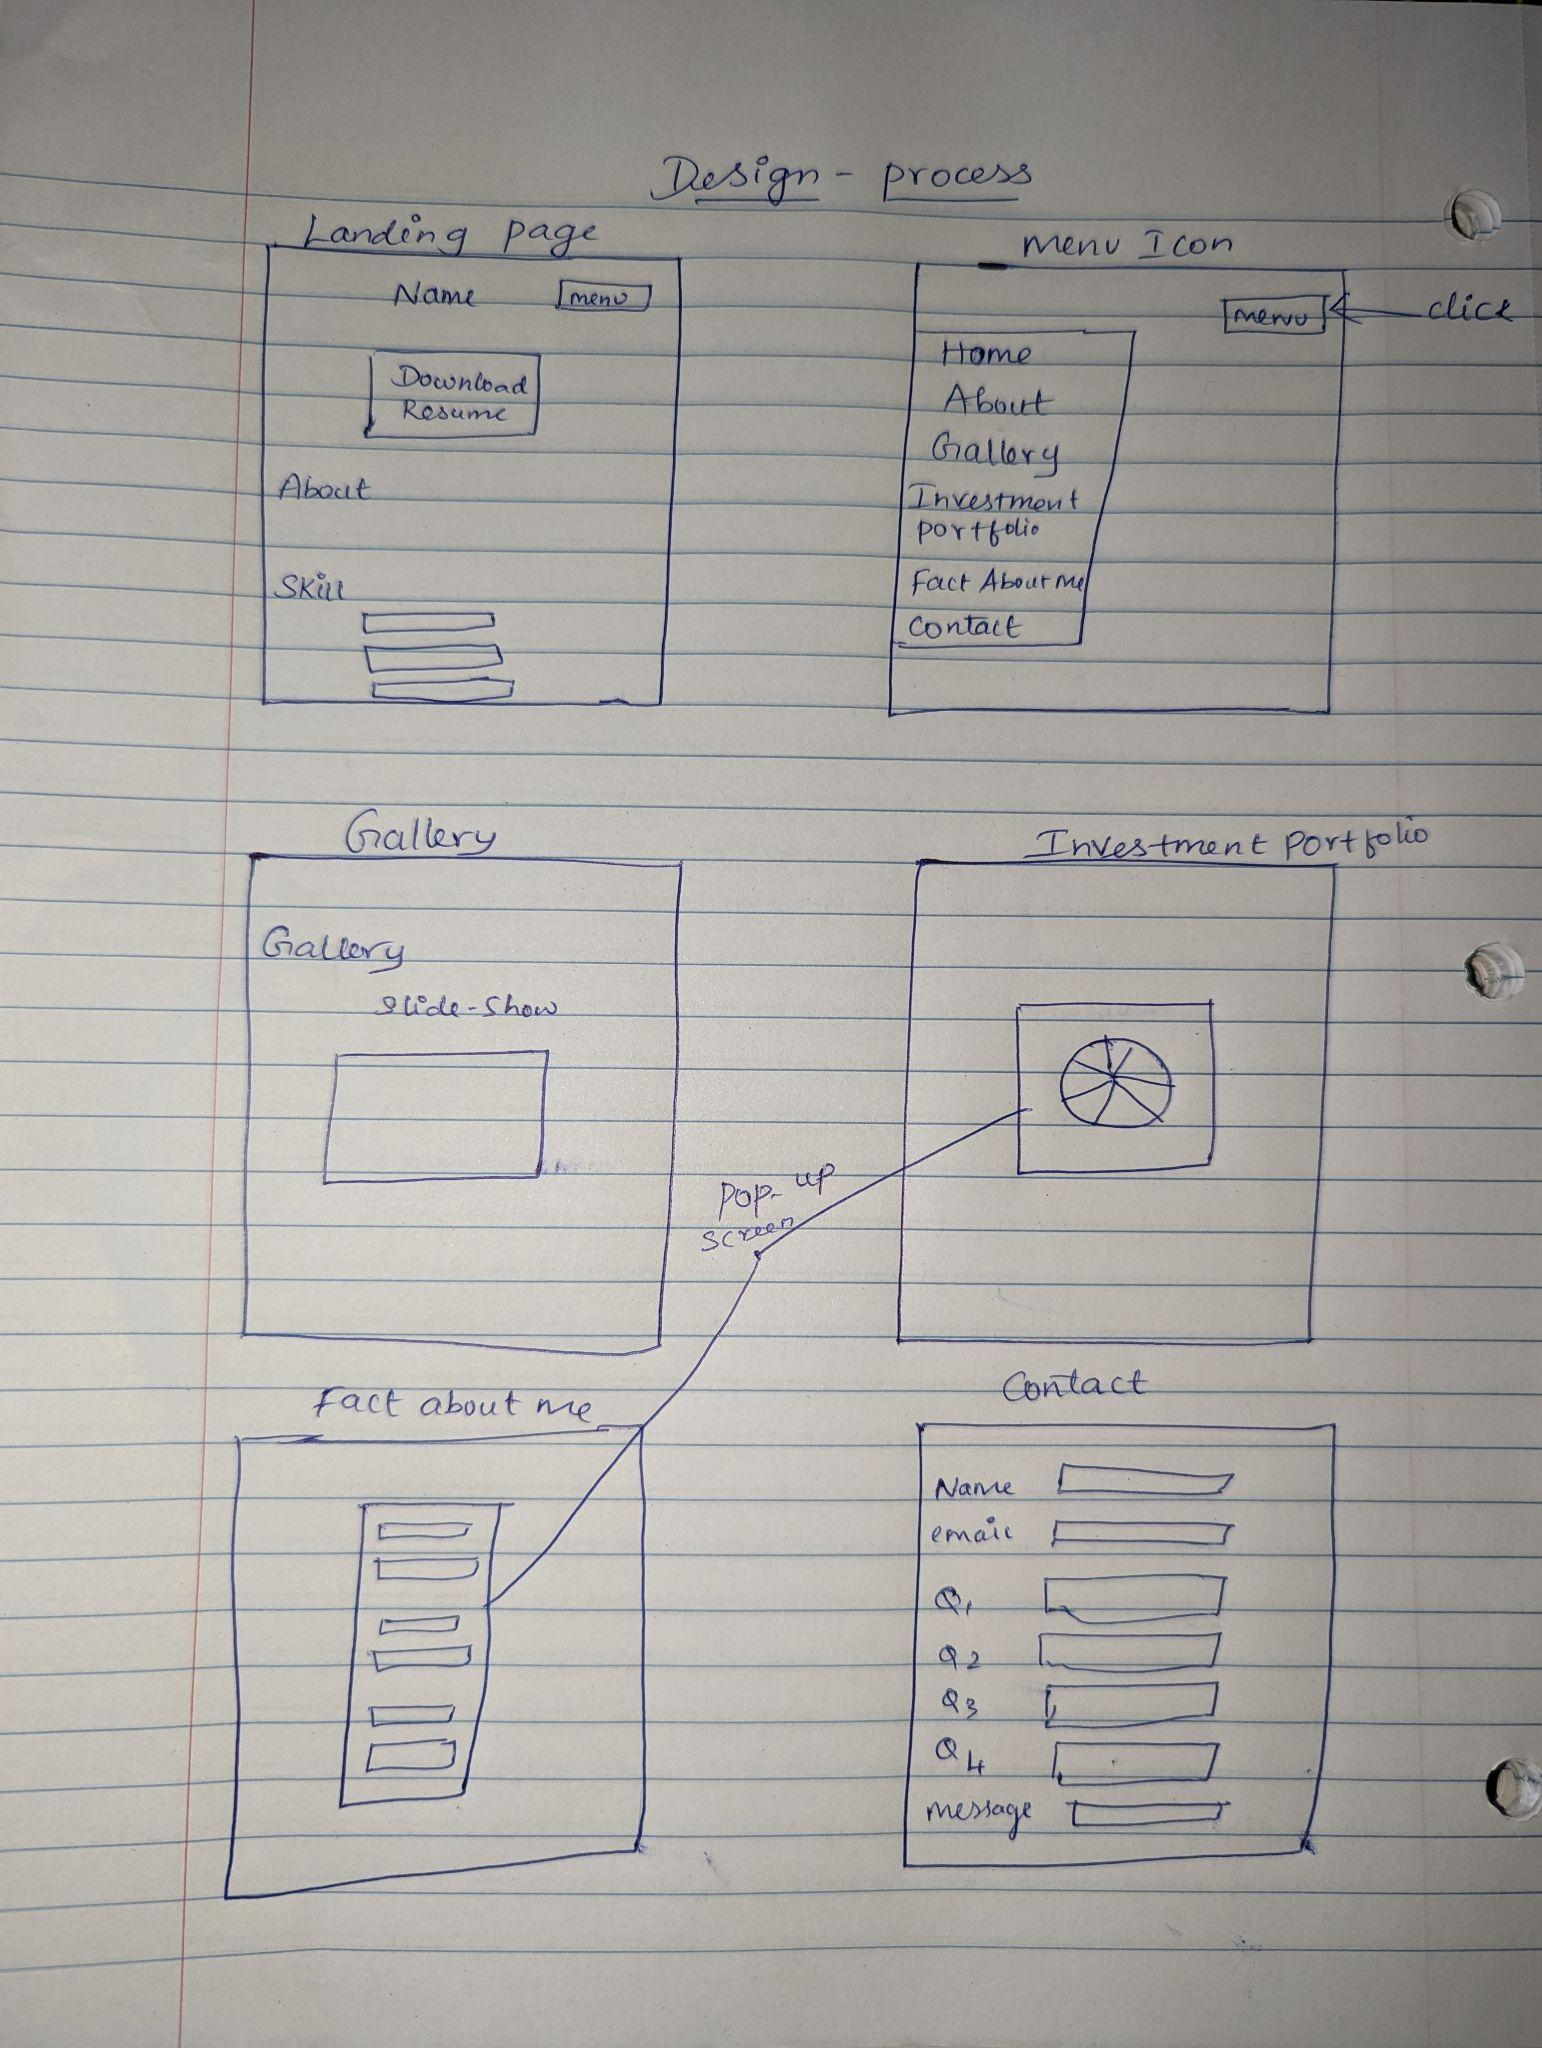 Design - process
Landing page
Name
menu
Download
Resume
About
Skill
Menu Icon
menu
click
Home
About
Gallery
Investment
portfolio
Fact About me
Contact
Gallery
Gallery
Slide-Show
Investment portfolio
Pop-up
Screen
Fact about me
Contact
Name
email
Q1
Q2
Q3
Q4
message